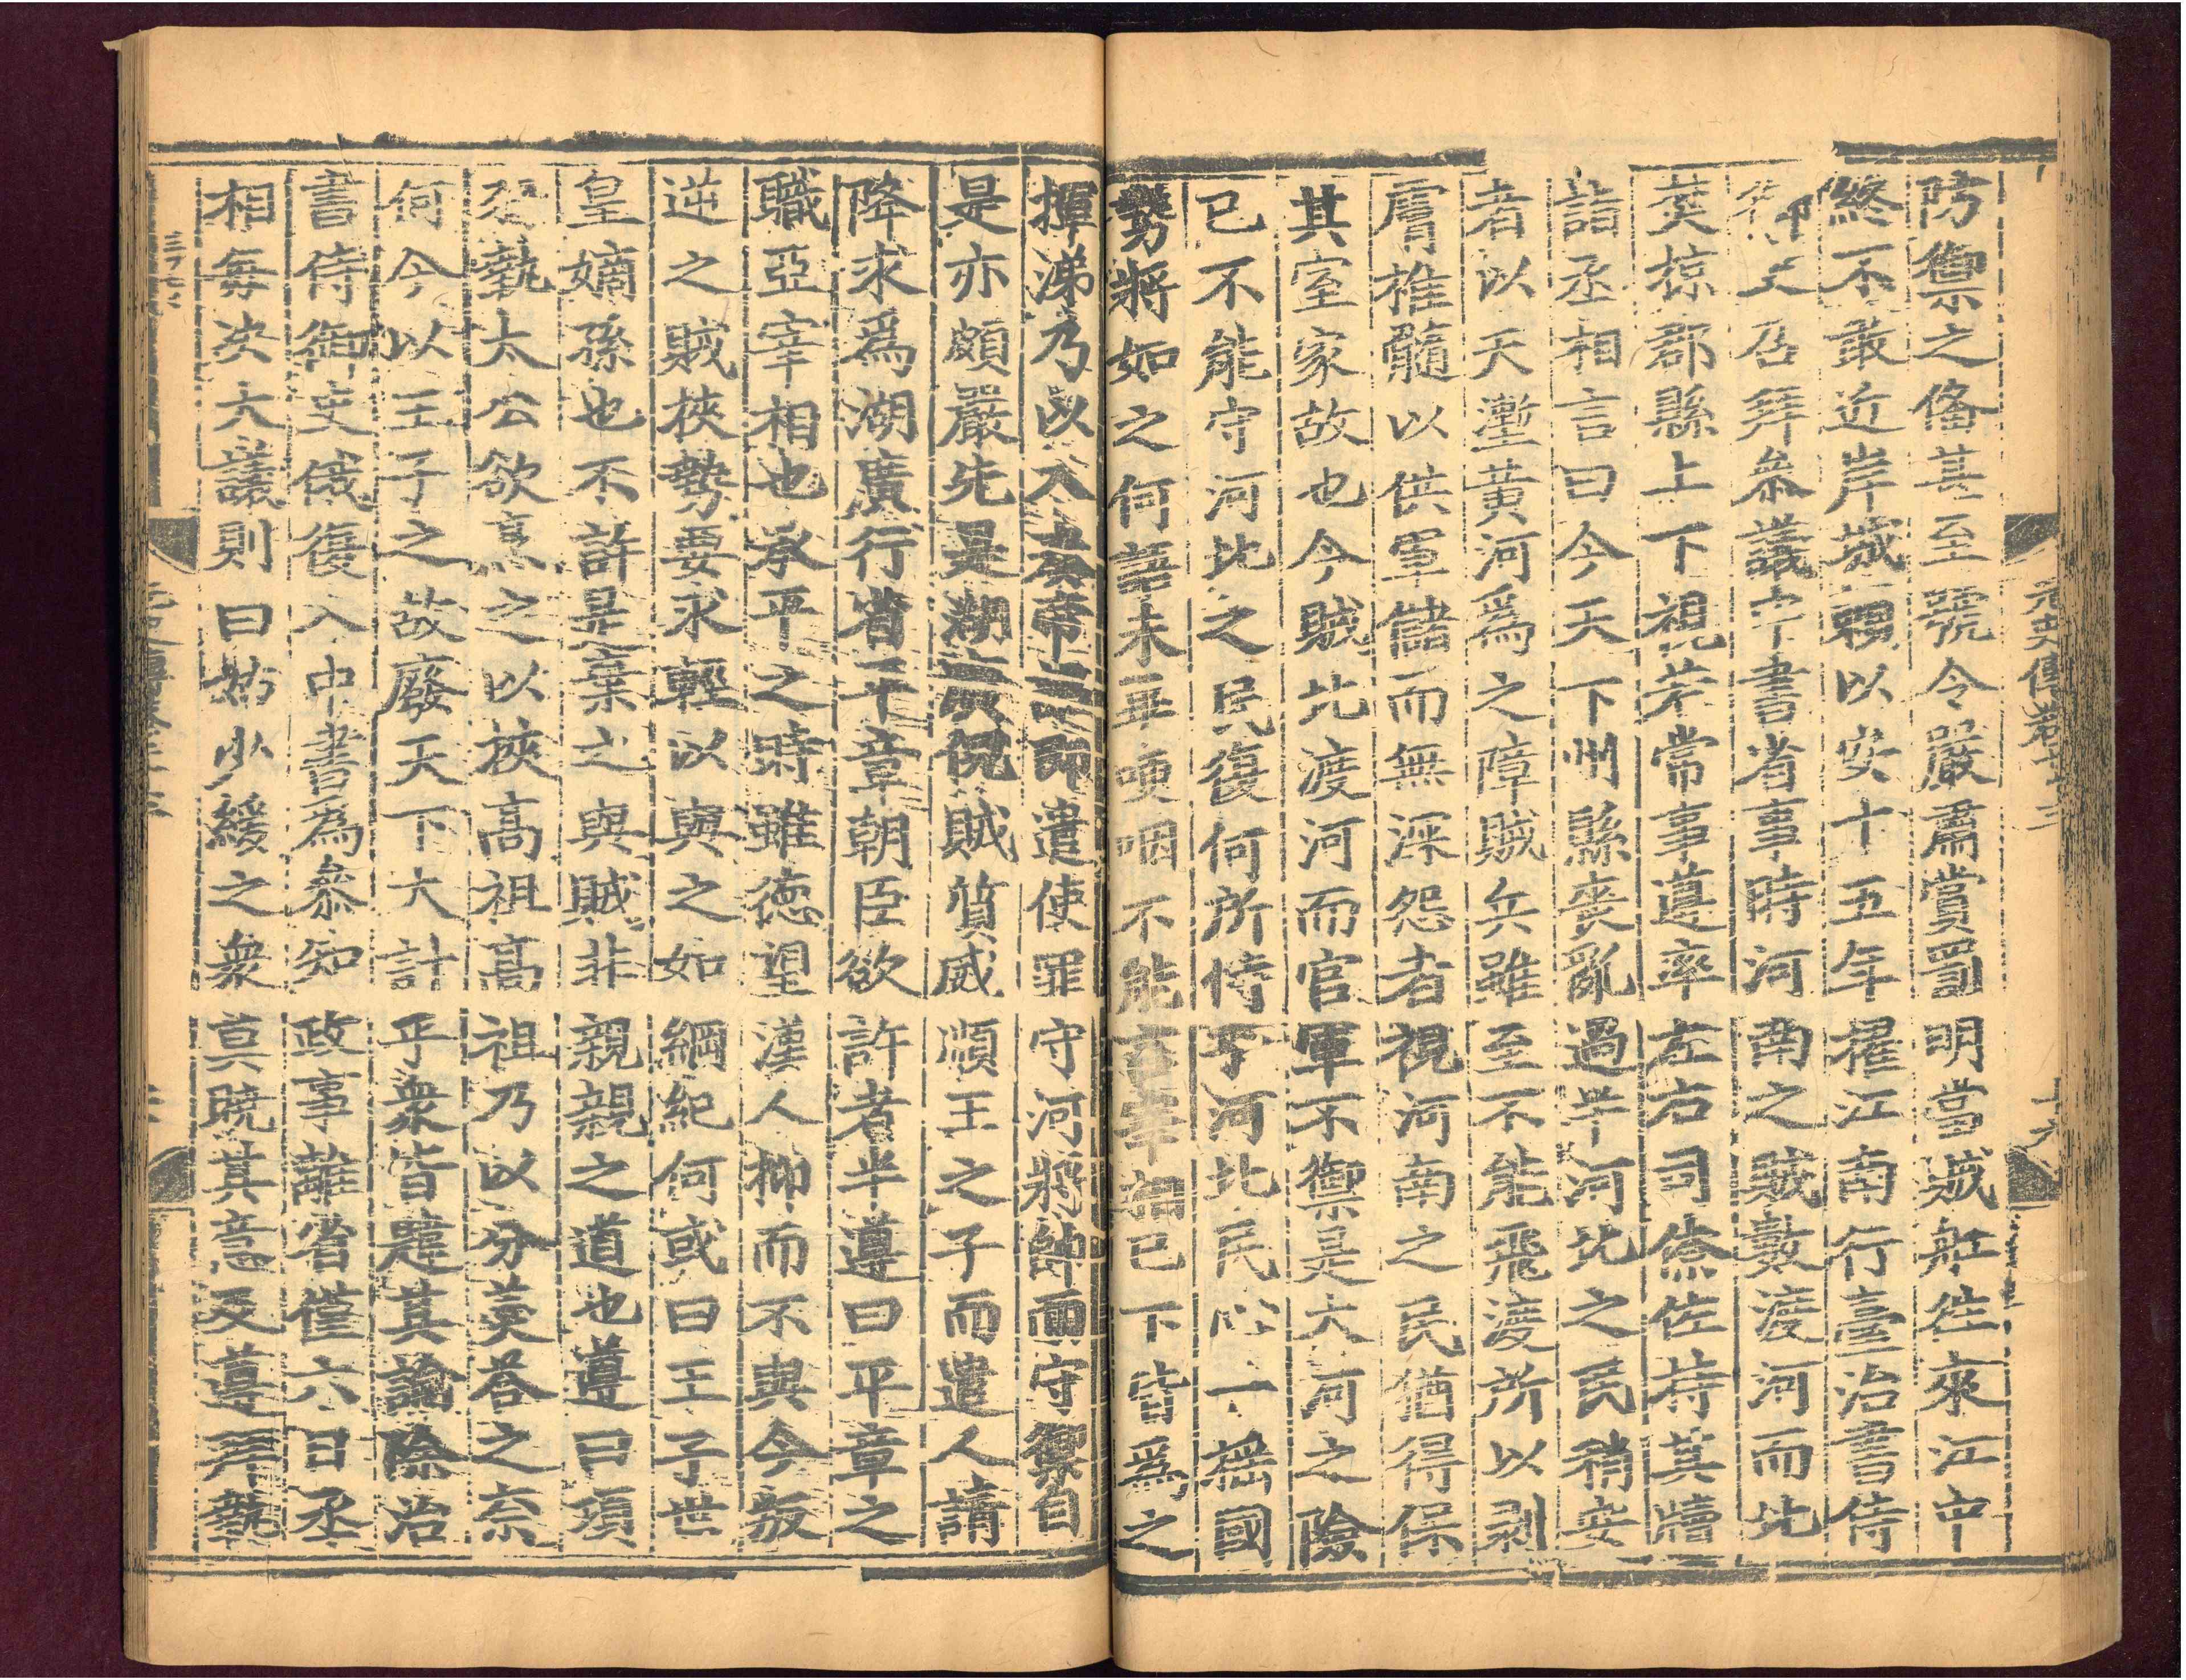 防禦之備甚至號令嚴肅賞罰明當賊舡徃來江中
終不敢近岸城頼以安十五年擢江南行臺治書侍
御史召拜叅議中書省事時河南之賊數渡河而北
焚掠郡縣上下視若常事遵率左右司僚佐持其牘
詣丞相言曰今天下州縣喪亂過半河北之民稍安
者以天塹黃河爲之障賊兵雖至不能飛渡所以剥
膚椎髓以供軍儲而無深怨者視河南之民猶得保
其室家故也今賊北渡河而官軍不禦是大河之險
已不能守河北之民復何所恃乎河北民心一摇國
勢將如之何語未畢哽咽不能言宰相已下皆爲之
揮涕乃以入奏帝即遣使罪守河將帥而守禦自
是亦頗嚴先是湖廣倪賊質威順王之子而遣人請
降求爲湖廣行省平章朝臣欲許者半遵曰平章之
職亞宰相也承平之時雖德望漢人抑而不與今叛
逆之賊挾勢要求輕以與之如綱紀何或曰王子世
皇嫡孫也不許是棄之與賊非親親之道也遵曰項
羽執太公欲烹之以挾高祖高祖乃以分羮荅之奈
何今以王子之故廢天下大計乎衆皆韙其論除治
書侍御史俄復入中書爲叅知政事離省僅六日丞
相每决大議則曰姑少緩之衆莫曉其意及遵拜執
元史傳卷七十三